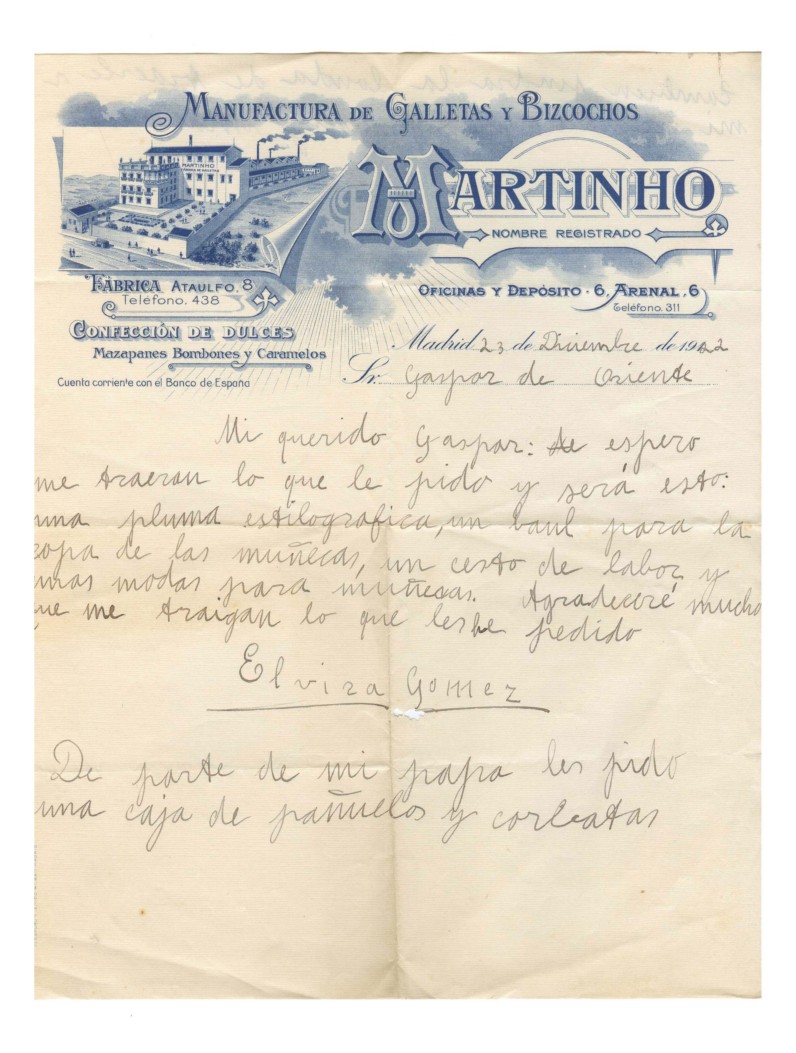 MANUFACTURA DE GALLETAS Y BIZCOCHOS
MARTINHO
MARTINHO
NOMBRE REGISTRADO
FÁBRICA ATAULFO, 8
Teléfono. 438
OFICINAS Y DEPÓSITO · 6, ARENAL, 6
Teléfono. 311
CONFECCIÓN DE DULCES
Mazapanes Bombones y Caramelos
Cuenta corriente con el Banco de España
Madrid 23 de Diciembre de 1922
Sr. Gaspar de Oriente
Mi querido Gaspar: espero
me traeran lo que le pido y será esto:
una pluma estilografica, un baul para la
ropa de las muñecas, un cesto de labor y
unas modas para muñecas. Agradeceré mucho
que me traigan lo que les he pedido
Elvira Gomez
De parte de mi papa les pido
una caja de pañuelos y corbatas